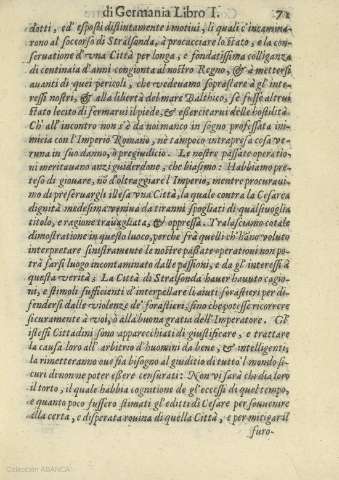 di Germania Libro I. 71
dotti, ed' esposti distintamente i motiui, li quali c'incamina-
rono al soccorso di Stralsonda, à procacciare lo stato, e la con-
seruatione d'vna Città per longa, e fondatissima colliganza
di centinaia d'anni congionta al nostro Regno, & à metterci
auanti di quei pericoli, che vedeuamo soprastare à gl'inte-
ressi nostri, & alla libertà del mare Balthico, se fusse altrui
stato lecito di fermarui il piede, & esercitarui delle hostilità.
Ch' all' incontro non s'è da noi manco in sogno professata ini-
micia con l'Imperio Romano, nè tampoco intrapresa cosa ve-
runa in suo danno, ò pregiudicio. Le nostre passate operatio-
ni meritauano anzi guiderdone, che biasimo: Habbiamo pre-
teso di giouare, nō d'oltraggiare l'Imperio, mentre procuraui-
mo di preseruargli illesa vna Città, la quale contro la Cesarea
dignità medesima veniua da tiranni spogliati di qualsiuoglia
titolo, e ragione trauagliata, & oppressa. Tralasciamo cotale
dimostratione in questo luoco, perche frà quelli ch'hāno voluto
interpretare sinistramente le nostre passate operationi non po-
trà farsi luogo incontaminato dalle passioni, e da gl'interessi à
questa verità; La Città di Stralsonda hauer hauuto cagio-
ni, e stimoli sufficienti d'interpellare li aiuti forastieri per di-
fendersi dalle violenze de' forastieri; sino che potesse ricorrere
sicuramente à voi, ò alla buona gratia dell'Imperatore. Gl'
istessi Cittadini sono apparecchiati di giustificare, e trattare
la causa loro all'arbitrio d'huomini da bene, & intelligenti,
la rimetteranno oue sia bisogno al giuditio di tutto'l mondo si-
curi di non ne poter essere censurati: Non vi sarà chi dia loro
il torto, il quale habbia cognitione de gl'eccessi di quel tempo,
e quanto poco fussero stimati gl'editti di Cesare per souuenire
alla certa, e disperata rouina di quella Città, e per mitigar il
furo-
Colección ABANCA